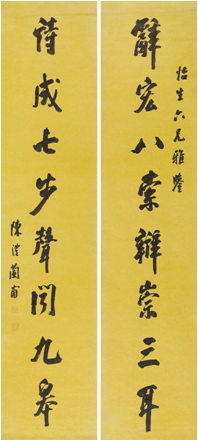 怡生六兄雅鑒
辭宏八索辯崇三耳
詩成七步聲聞九皋
陳澧蘭甫